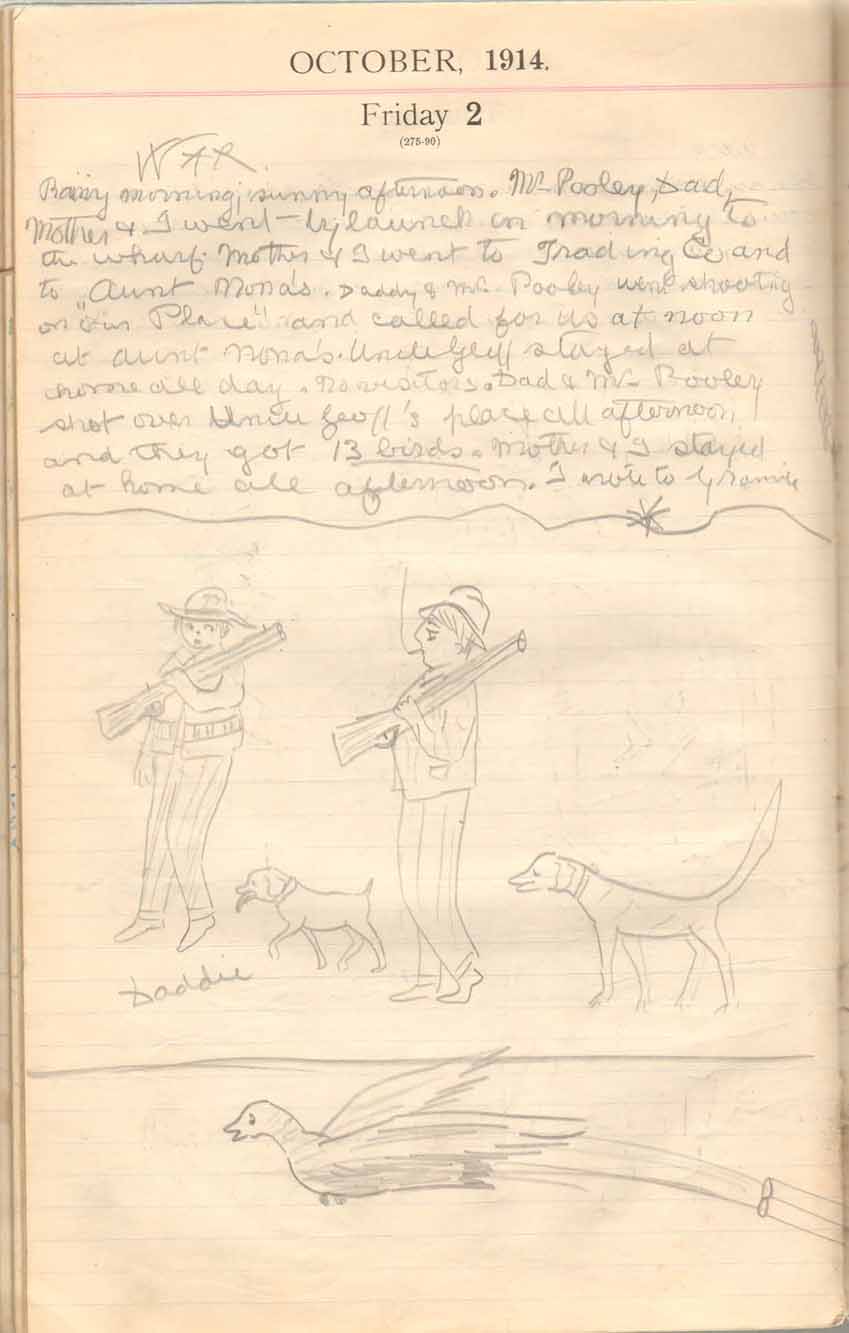 OCTOBER, 1914.
Friday 2
(275-90)
WAR.
Rainy morning, sunny afternoon. Mr Pooley, Dad,
Mother & I went by launch in morning to
the wharf. Mother & I went to Trading Co and
to Aunt Nona's. Daddy & Mr Pooley went shooting
on "Our Place" and called for us at noon
at Aunt Nona's. Uncle Geoff stayed at
home all day. No visitors. Dad & Mr Pooley
shot over Uncle Geoff's place all afternoon
and they got 13 birds. Mother & I stayed
at home all afternoon. I wrote to Grannie
Daddie